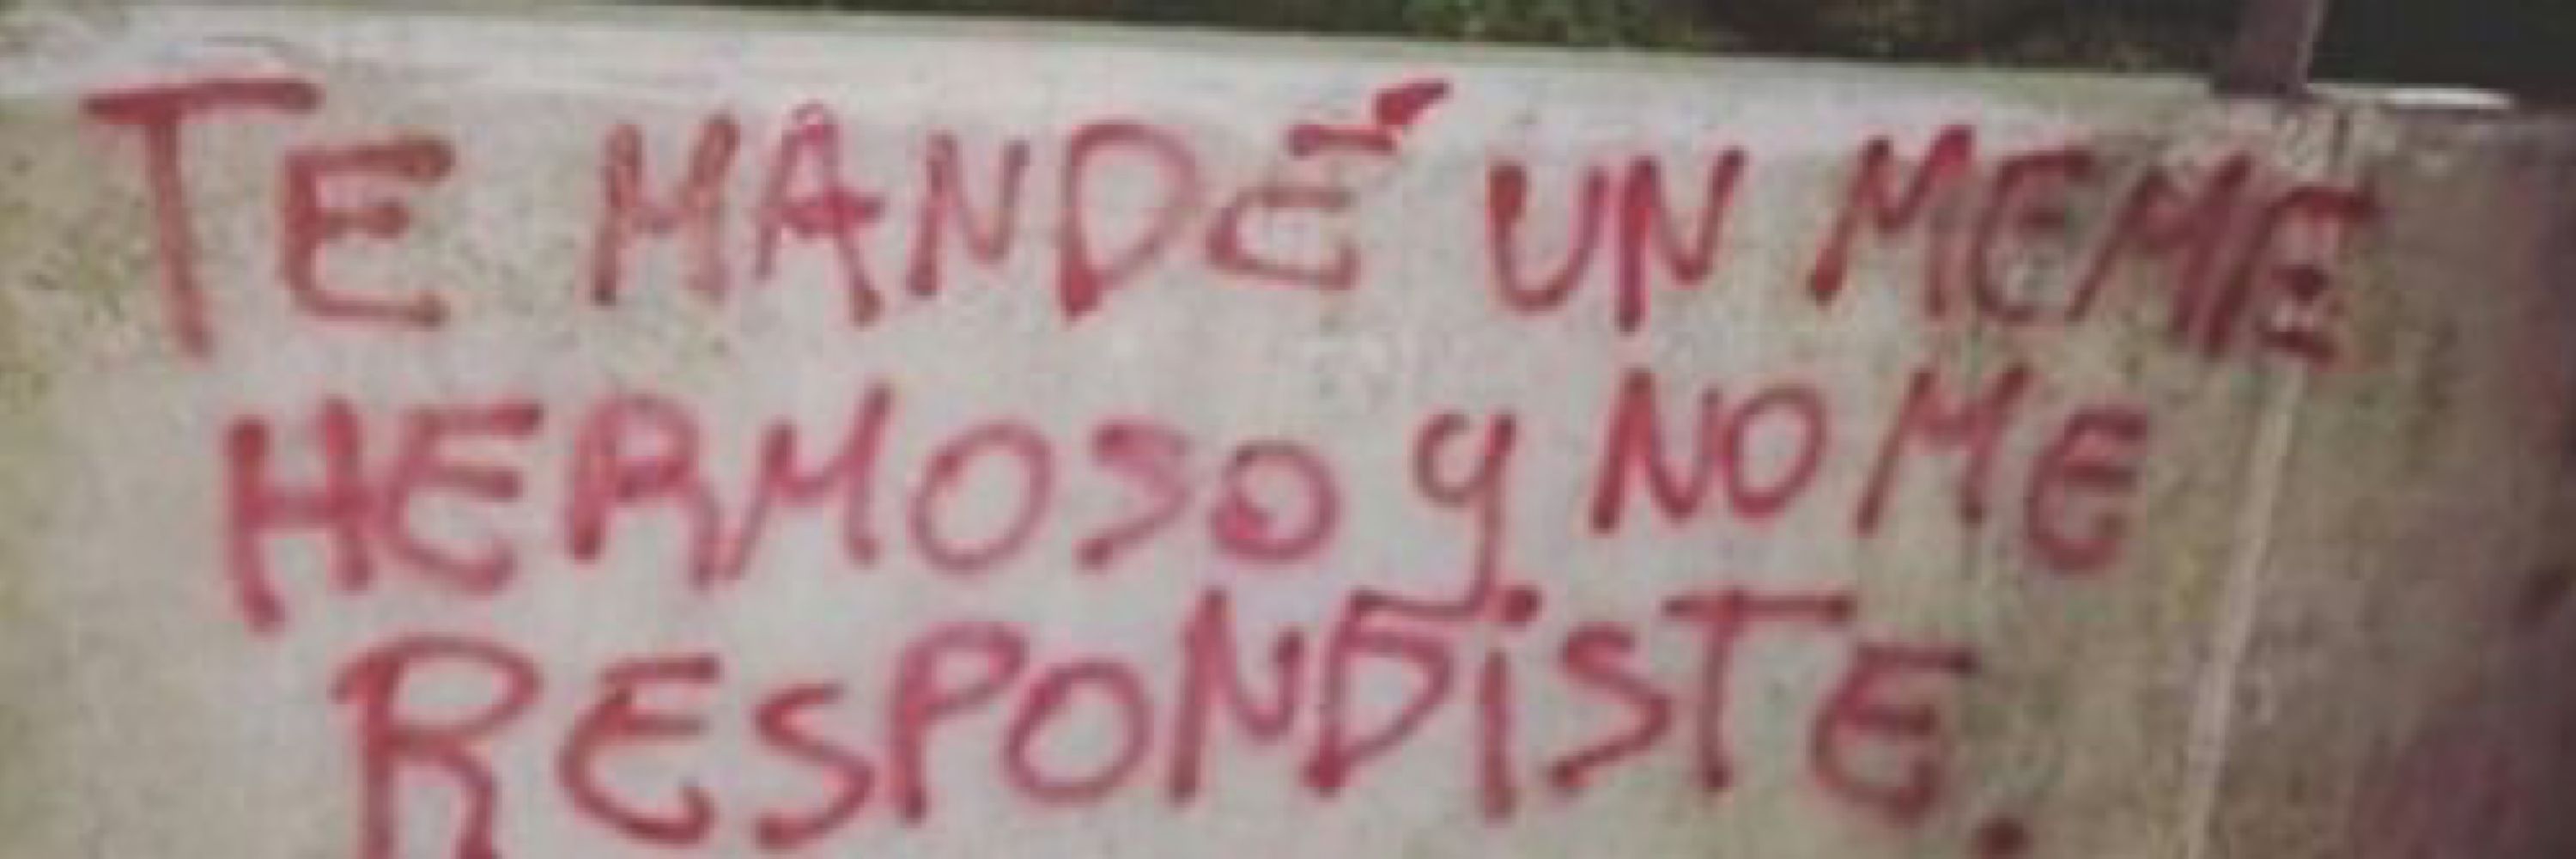 TE MANDÉ UN MEME
HERMOSO y NO ME
RESPONDiSTE.